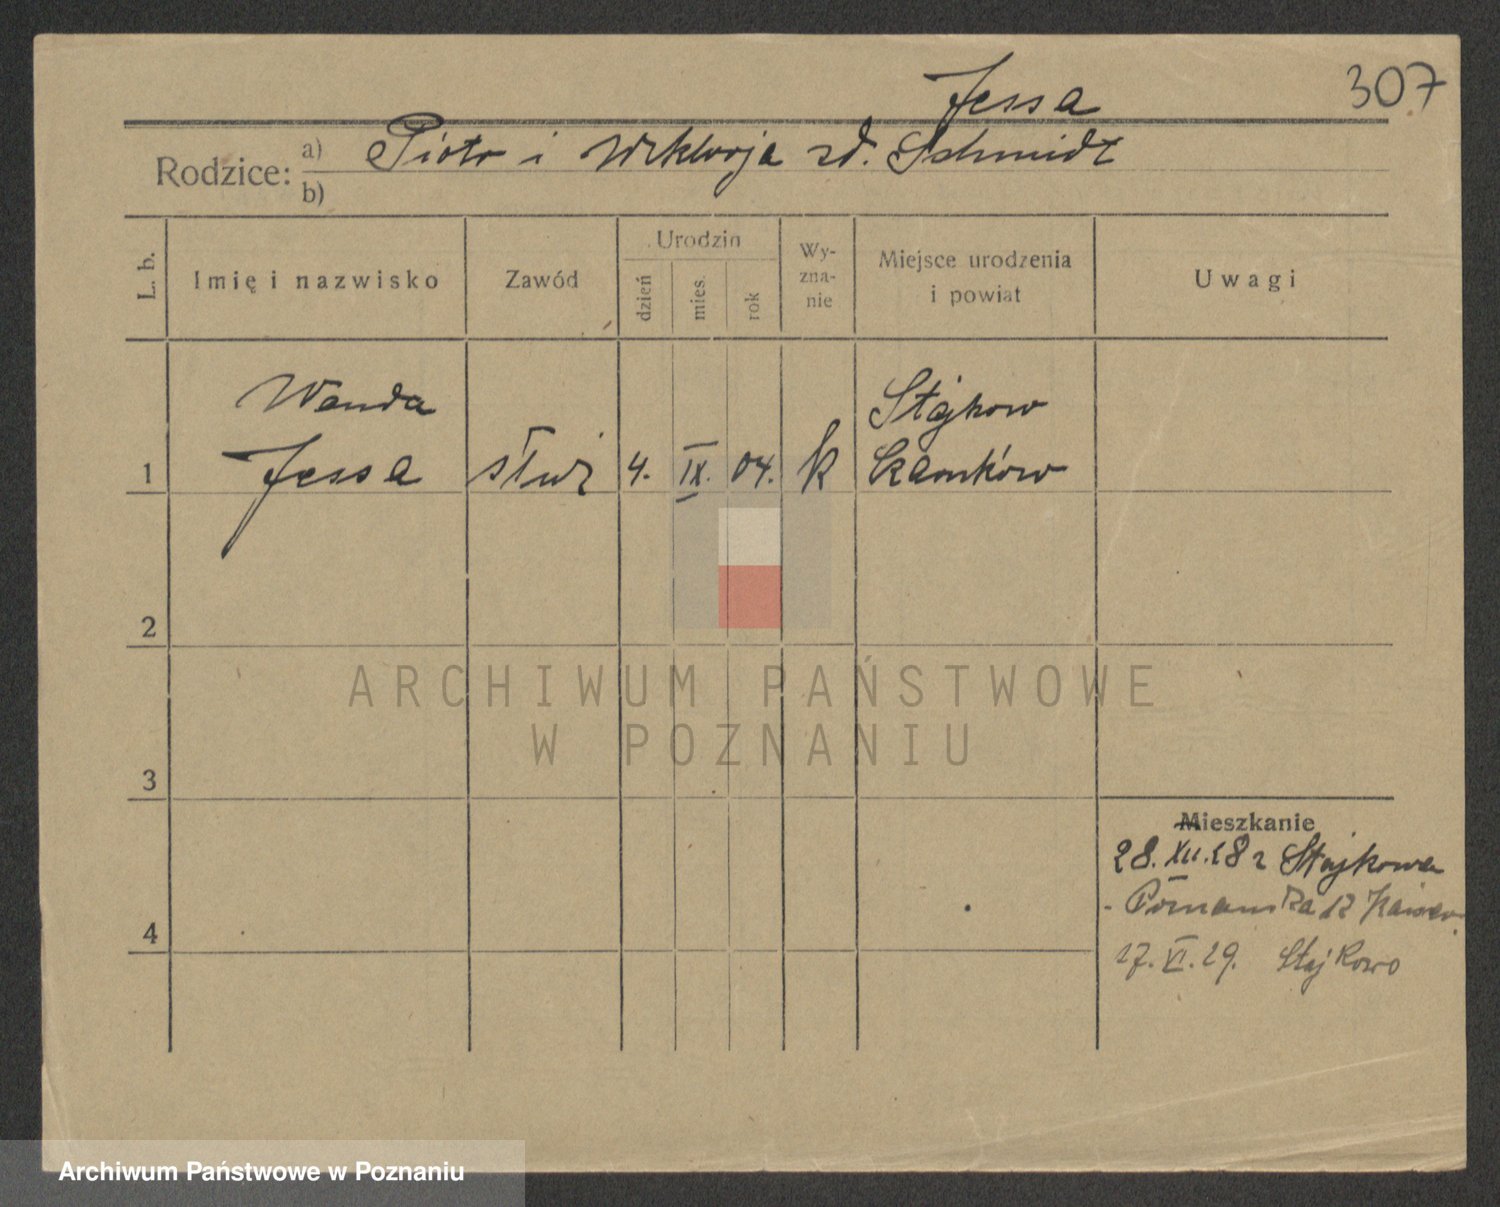 307
Jessa
Rodzice: a) Piotr i Wiktorja zd. Schmidt
b)
L. b.
Imię i nazwisko
Zawód
Urodzin
dzień
mies.
rok
Wy-
zna-
nie
Miejsce urodzenia
i powiat
Uwagi
Wanda
Stajkow
1 Jessa służ 4. IX. 04. k Czarnków
2
3
4
Mieszkanie
28. XII. 28 z Stajkowa
- Poznańska 12
17. VI. 29. Stajkowo
ARCHIWUM PAŃSTWOWE
W POZNANIU
Archiwum Państwowe w Poznaniu